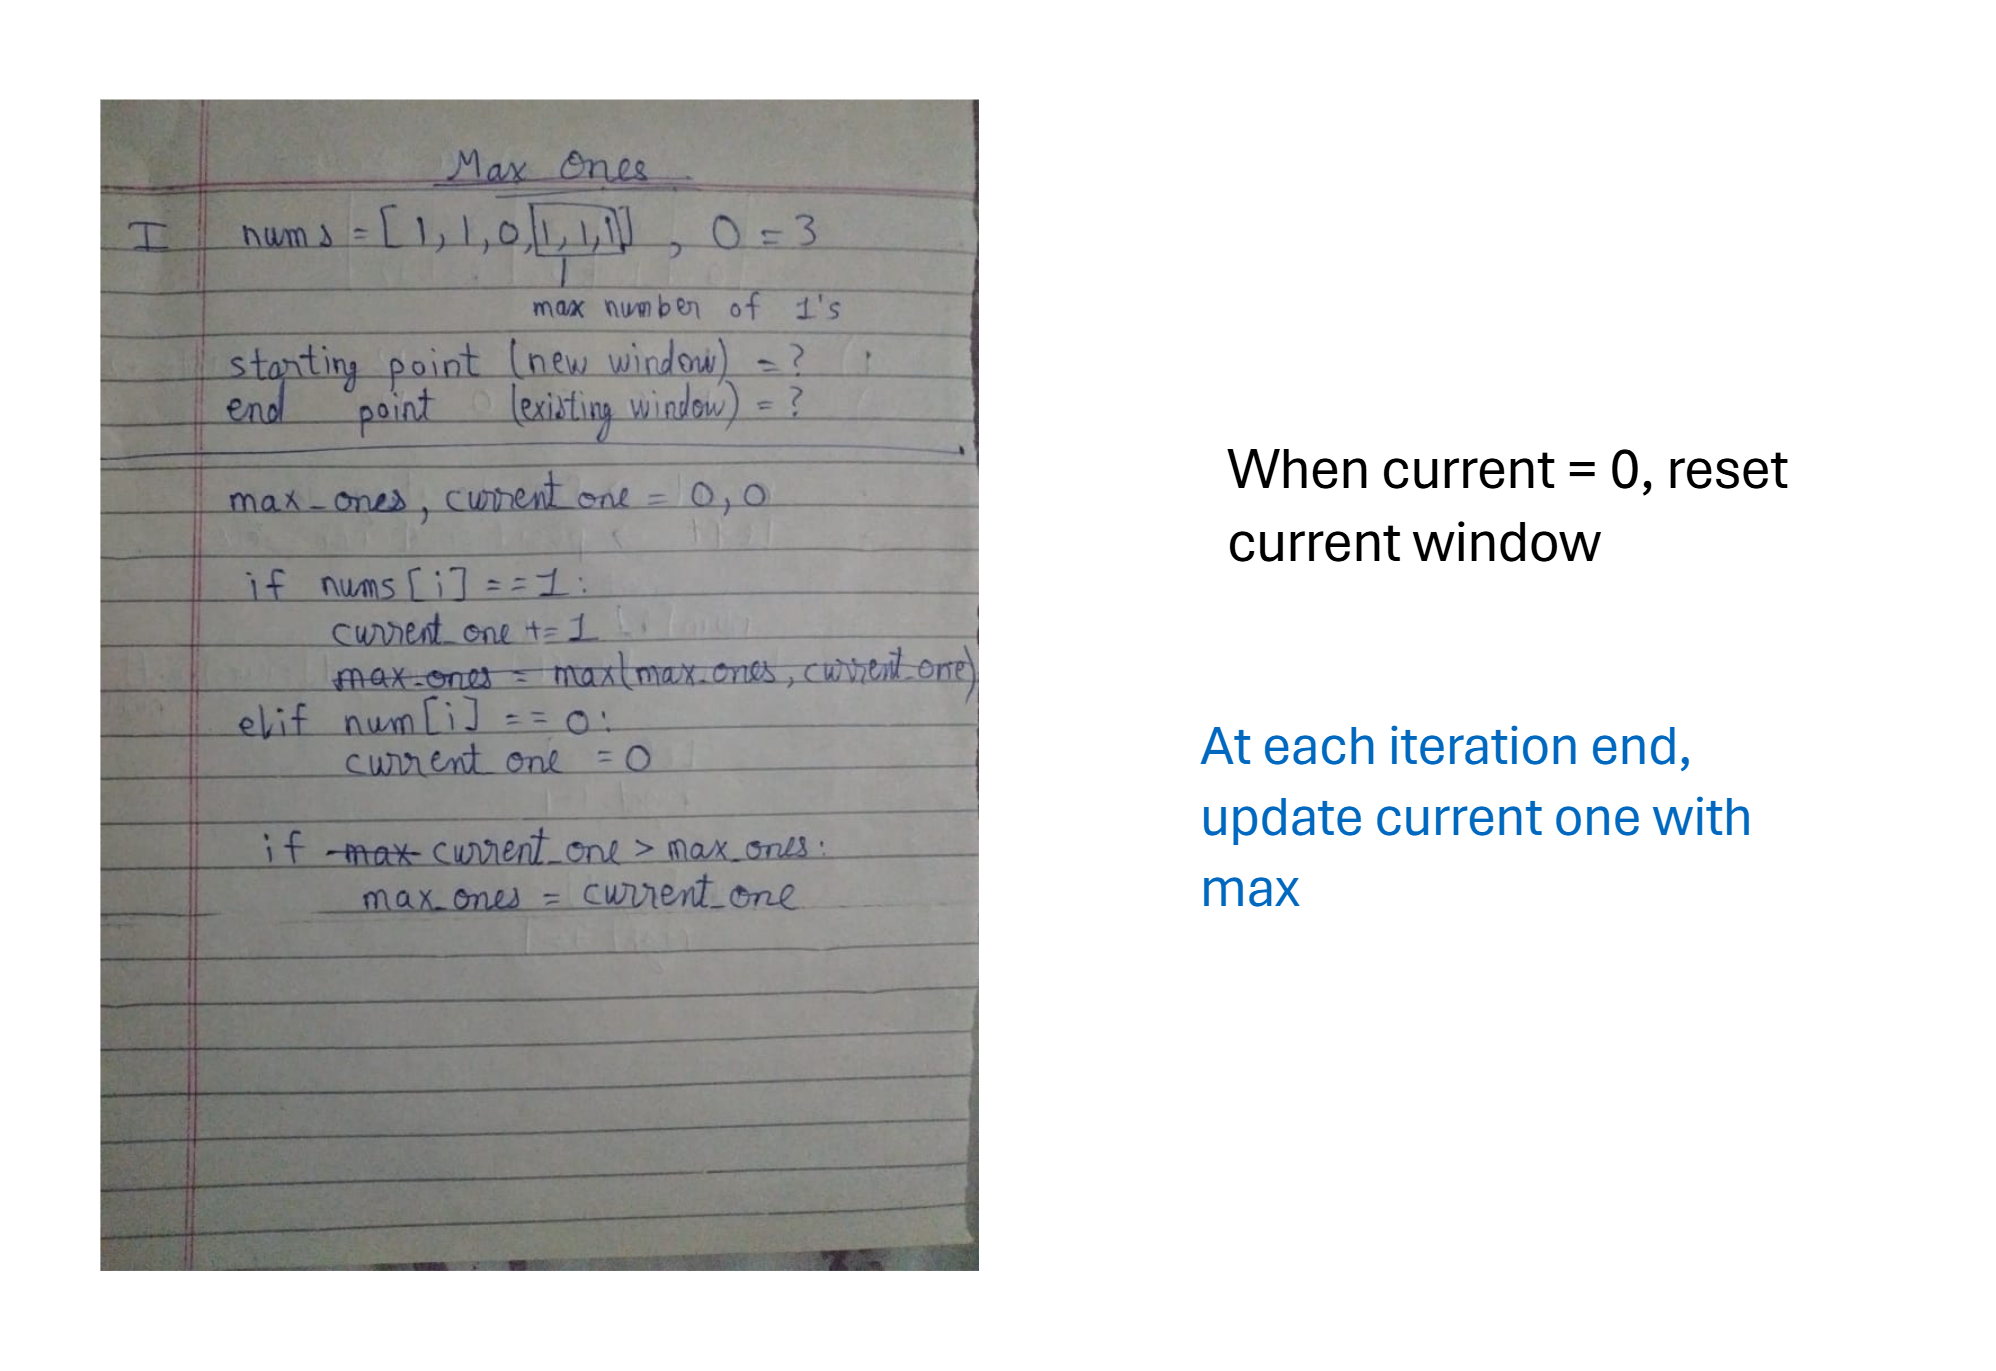 Max Ones
I nums = [1, 1, 0, 1, 1, 1] , O = 3
max number of 1's
starting point (new window) = ?
end point (existing window) = ?
max_ones, current_one = 0, 0
if nums[i] == 1:
current_one += 1
max_ones = max(max_ones, current_one)
elif num[i] == 0:
current_one = 0
if max current_one > max_ones:
max_ones = current_one
When current = 0, reset
current window
At each iteration end,
update current one with
max